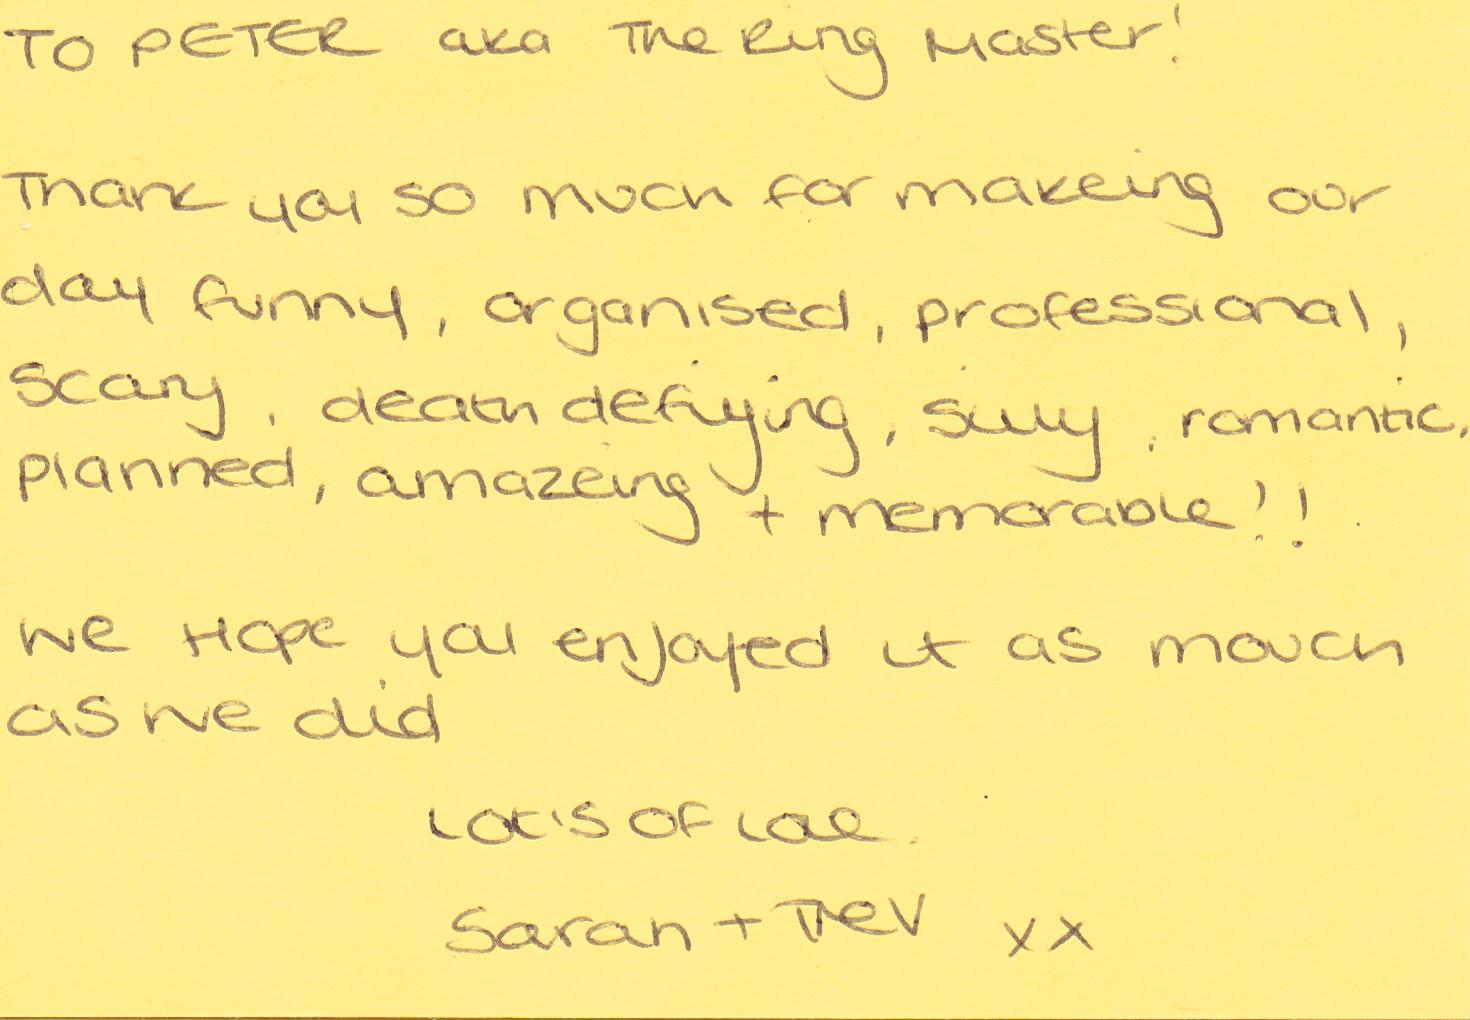 TO PETER aka The Ring Master!
Thank you so much for makeing our
day funny, organised, professional,
scary, death defiying, silly, romantic,
planned, amazeing + memorable!!
we Hope you enjoyed it as mouch
as we did
Lot's OF Love
Sarah + Trev xx